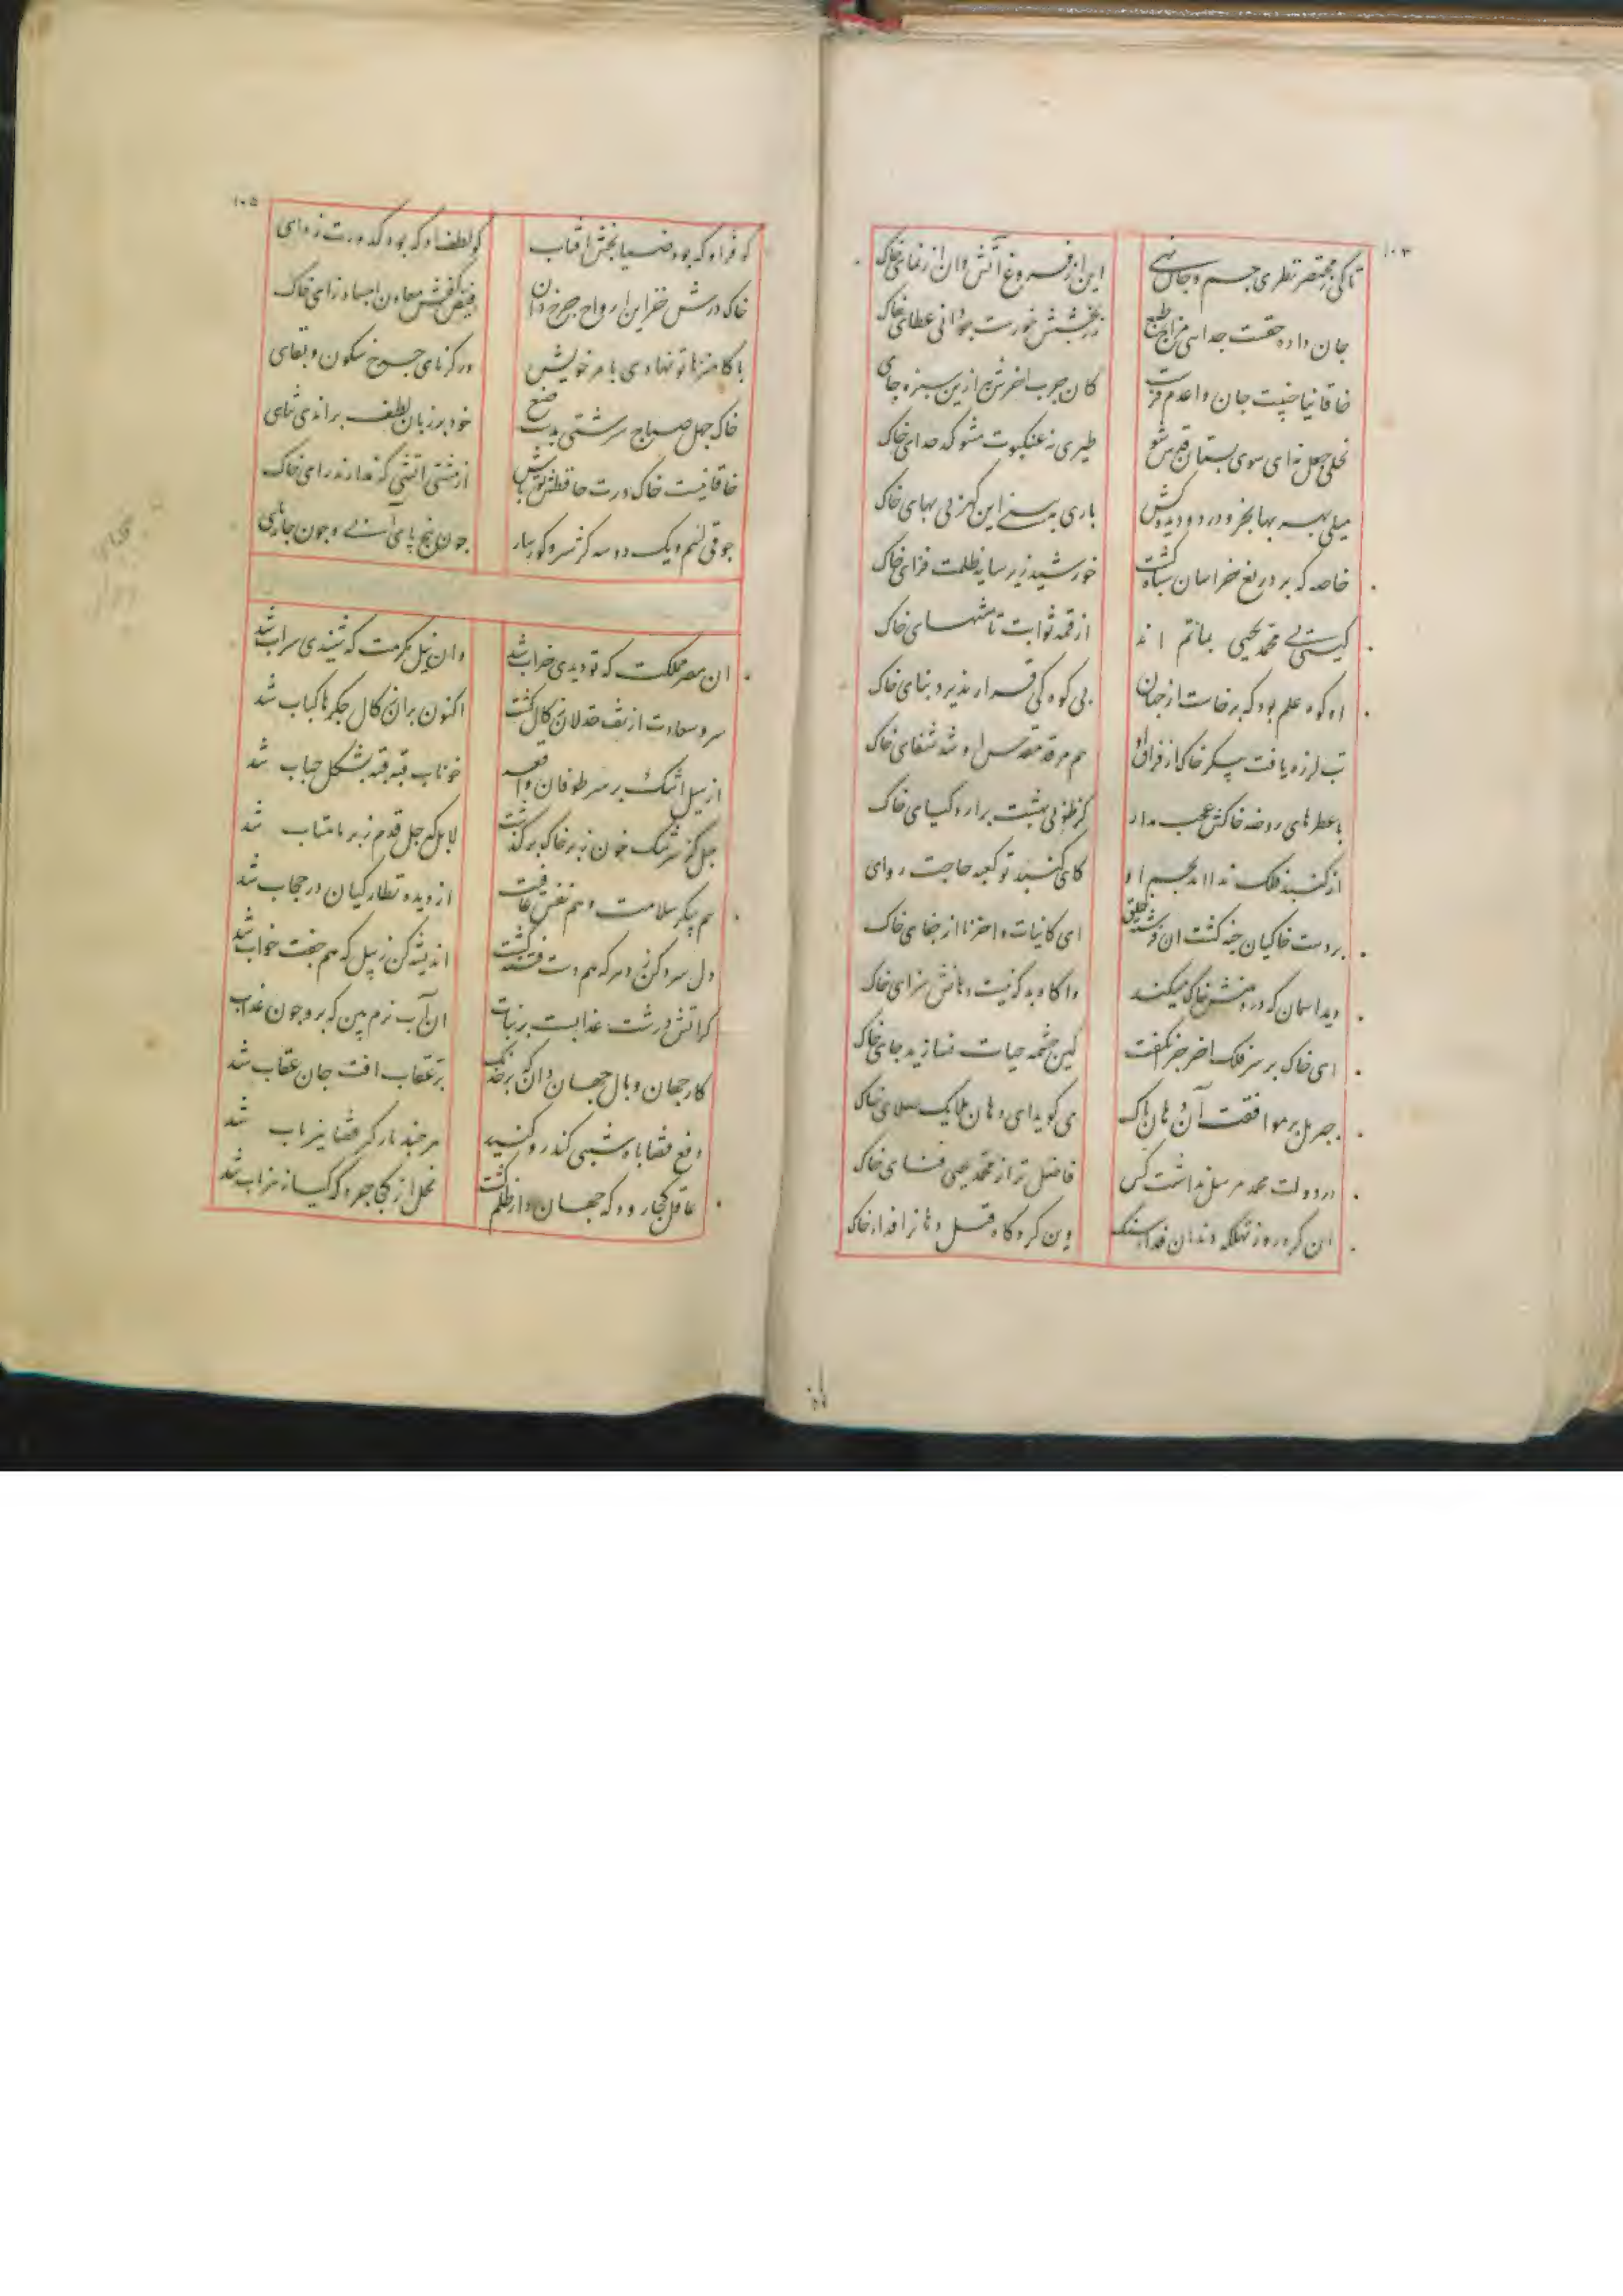 ۱۰۳
تا کی ز مختصر نظری جسم و جان نهی این از فروغ آتش و آن از نمای خاک
جان داده حقست جدا بی مزاج طبع زر بخشش خورست چه دانی عطای خاک
خاقانیا جان واعدم کان چرب آخرش به ازین سبزه جای خاک
نحلی جعل نه ای سوی بستان قدس شو طیری نه عنکبوت مشو کدخدای خاک
میلی بهر بها بخر و در دو دیده کش باری نه بینی این گهر بی بهای خاک
خاصه که بر دریغ خراسان سیاه گشت خورشید زیر سایه ظلمت فزای خاک
گیتی محمد یحیی بماتم اند از قمه ثوابت تا منتهای خاک
او کوه علم بود که برخاست از جهان بی کوه کی قرار پذیرد بنای خاک
تب لرزه یافت پیکر خاک از فراق او هم مرقد مقدس او شد شفای خاک
با عطرهای روضه خاکش عجب مدار گر طوبی بهشت برارد گیای خاک
از گنبد فلک ندا امد بجسم او کای گنبد تو کعبه حاجت روای
بر دست خاکیان خپه گشت آن فرشته خلق ای کاینات واحزنا از جفای خاک
دید آسمان که در دهنش خاک میکنند واگاه بد که نیست دهانش سزای خاک
ای خاک بر سر فلک آخر چرا نگفت کین چشمه حیات مسازید جای خاک
جبریل بر موافقت آن دهان پاک می گوید ای دهان ملایک صلای خاک
در دولت محمد مرسل نداشت کس فاضل تر از محمد یحیی فنای خاک
آن کرد روز تهلکه دندان فدا سنگ وین کرد گاه قتل دهان را فدای خاک
۱۰۵
کو فر او که بود ضیا بخش آفتاب کو لطف او که بود کدورت زدای
خاک درش خزاین ارواح چرخ دان فیض کفش معادن اجساد زای خاک
با کام نهادی بامر خویش در کرنای چرخ سکون و بقای
خاک چهل صباح سرشتی بدست صنع خود بر زبان لطف براندی ثنای
خاقانیست خاک درت حافظش تو باش از مشتی آتشی که ندارند رای خاک
جوقی لئیم یک دو سه کژ سیر و کور سار چون پنج پای آبی و چون چارپای
آن مصر مملکت که تو دیدی خراب شد وان نیل مکرمت که شنیدی سراب شد
سرو سعادت از تف خذلان زکال گشت اکنون بران زکال جگرها کباب شد
از سیل اشک بر سر طوفان واقعه خوناب قبه قبه بشکل حباب شد
چل گز سرشک خون ز بر خاک بر گذشت لا بل که چل قدم ز بر ماهتاب شد
هم پیکر سلامت و هم نقش عافیت از دیده نظارگیان در حجاب شد
دل سرد کن ز دهر که هم دست فتنه گشت اندیشه کن ز پیل که هم جفت خواب شد
کاتش درشت عذابست بر نبات آن آب نرم بین که برو چون عذاب
کار جهان وبال جهان دان که بر خدنگ پر عقاب افت جان عقاب شد
دفع قضا باه شبی کندرو کنید هر چند بارگیر قضا تیزتاب شد
عاقل کجا رود که جهان دار ظلم گشت نحل از کجا چرد که گیا زهر ناب شد